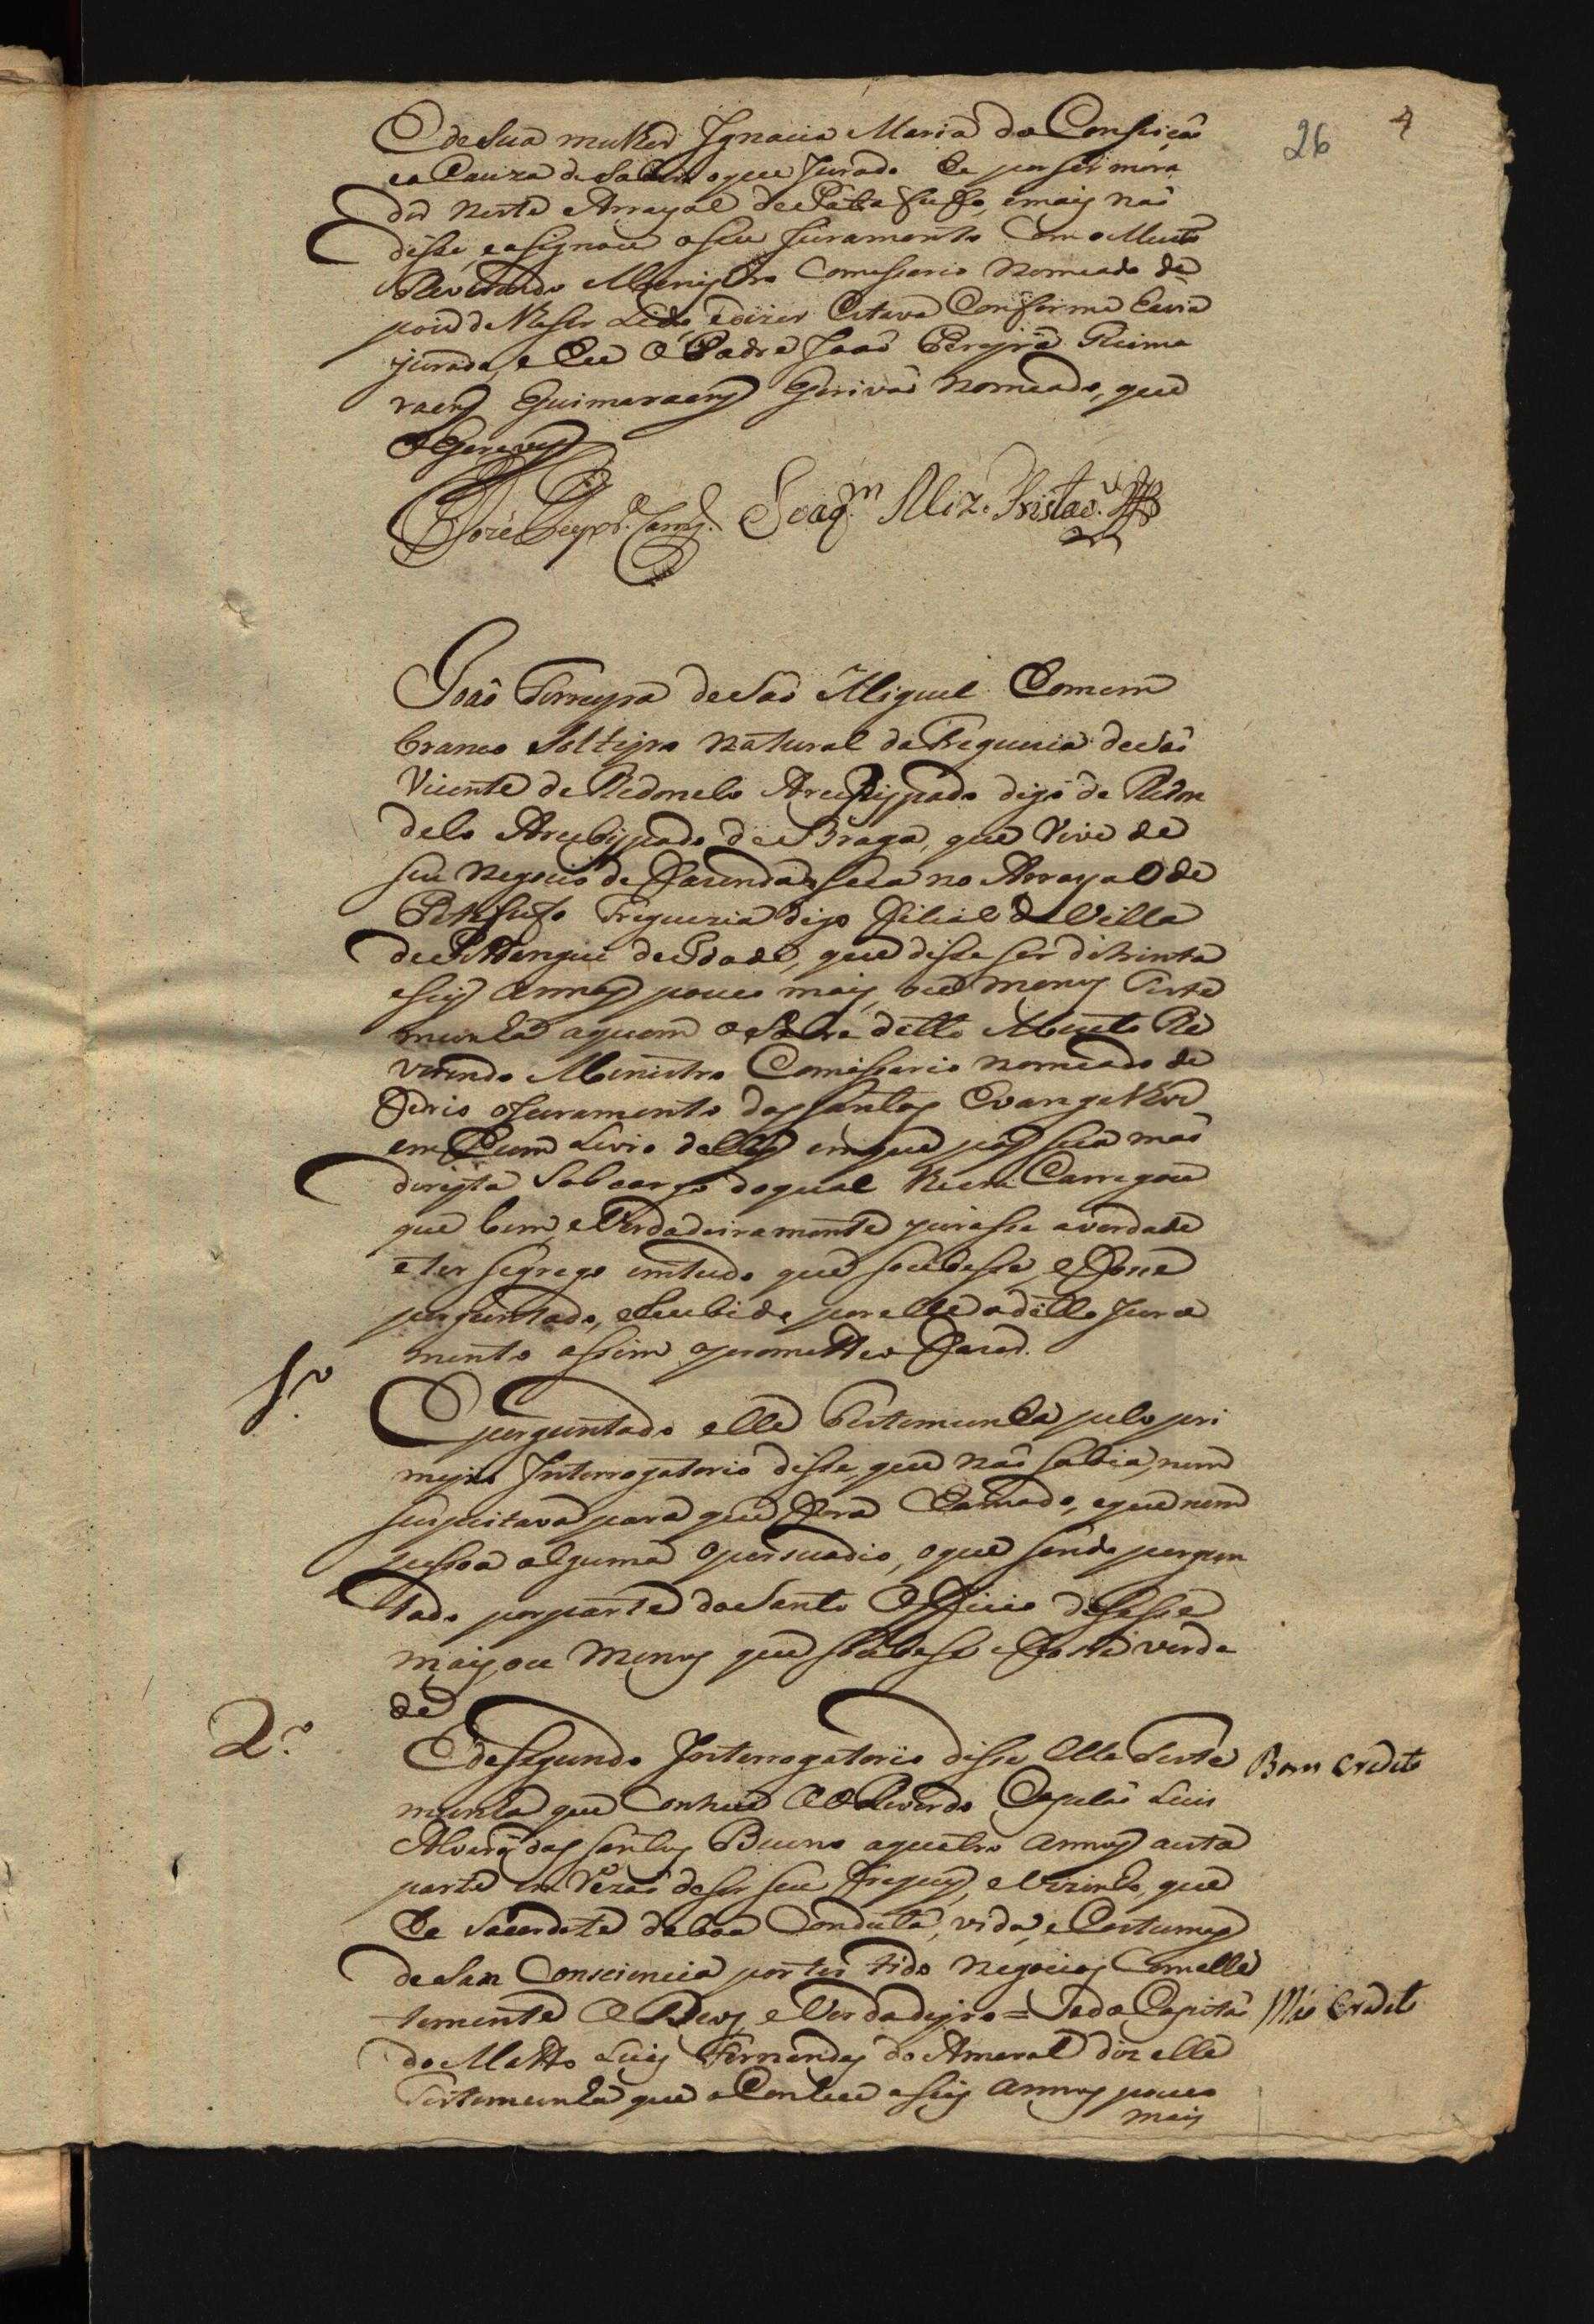 26 4
E de Sua mulher Ignacia Maria da Conseição
e a Cauza de saber o que Jurado he por ser mora
dor neste Arrayal de Patafufo, e mais não
disse, e asignou o seu Juramento Com o Muito
Reverendo Menistro Comessario nomeado de
pois de lhe ser Lido, e dizer estava Conforme havia
jurado, e Eu o Padre João Pereyra Guima
raens Guimaraens Escrivão nomeado, que
o Escrevy
Joaq.m Miz. Tristão
João Ferreyra de São Miguel homem
branco Solteyro natural da Freguezia de São
Vicente de Redonelo Arcebispado digo de Redon
delo Arcebispado de Braga, que Vive de
seu negocio de Fazenda seca no Arrayal de
Patafufo Freguezia digo Filial da Villa
de Pittangui de Idade, que disse ser de trinta
e seis annos pouco mais, ou menos Teste
munha a quem o Sobre ditto Muito Re
verendo Menistro Comissario nomeado de
ferio o Juramento dos Santos Evangelhos
em hum Livro delles em que pos sua mão
direyta Sob cargo do qual lhe en Carregou
que bem, e Verdadeiramente jurasse a verdade
e ter segrego em tudo que soubesse, e Fosse
perguntado, e recebido por elle o ditto Jura
mento assim o prometteo Fazer.
1.º
E perguntado elle Testemunha pelo pri
meyro Interrogatorio disse, que não sabia, nem
suspeitava para que Fora Chamado, e que nem
pessoa alguma o persuadio, o que sendo pergun
tado por parte do Santo Officio dissesse
mais, ou menos que soubese e Fosse verda
de
2.º
E do segundo Interrogatorio disse elle Teste Bom credito
munha que Conhece o Reverendo Capelão Luis
Alvares dos Santos Bueno a quatro annos a esta
parte em rezão de ser seu Freguez, e Vizinho, que
he Sacerdote de boa Conducta, vida, e Costumes
de San Consciencia por ter tido negocios Com elle
temente a Deos, e Verdadeyro = e do Capitão Máo credito
do Matto Luis Fernandes do Amaral diz elle
Testemunha que o Conhece a seis annos pouco
mais